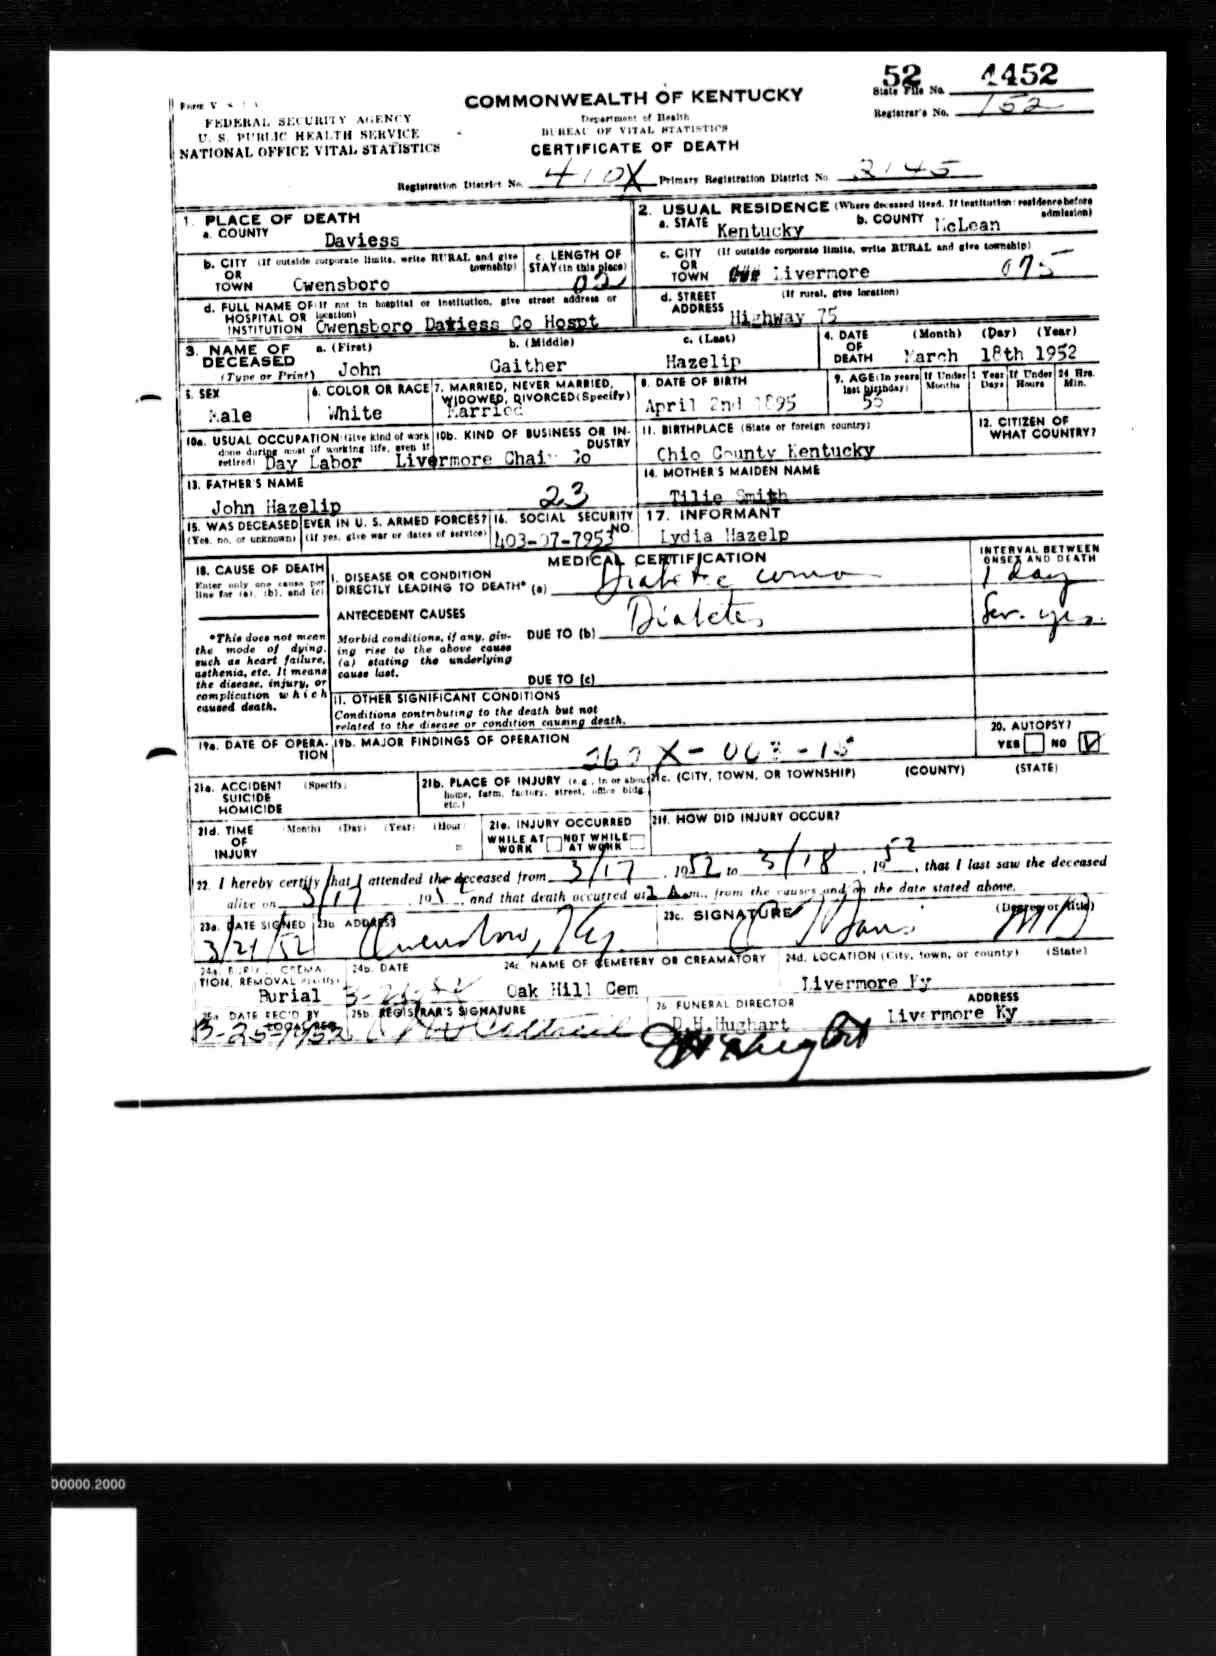 52 4452
State File No.
Registrar's No. 152
COMMONWEALTH OF KENTUCKY
Department of Health
BUREAU OF VITAL STATISTICS
CERTIFICATE OF DEATH
FEDERAL SECURITY AGENCY
U. S. PUBLIC HEALTH SERVICE
NATIONAL OFFICE VITAL STATISTICS
Registration District No. 410X Primary Registration District No. 2145
1. PLACE OF DEATH
a. COUNTY Daviess
2. USUAL RESIDENCE (Where deceased lived. If institution: residence before admission)
a. STATE Kentucky b. COUNTY McLean
b. CITY (If outside corporate limits, write RURAL and give township)
OR
TOWN Owensboro
c. LENGTH OF
STAY (in this place)
c. CITY (If outside corporate limits, write RURAL and give township)
OR
TOWN Livermore 075
d. FULL NAME OF (If not in hospital or institution, give street address or location)
HOSPITAL OR
INSTITUTION Owensboro Daviess Co Hospt
d. STREET (If rural, give location)
ADDRESS Highway 75
3. NAME OF DECEASED
(Type or Print)
a. (First) John
b. (Middle) Gaither
c. (Last) Hazelip
4. DATE OF DEATH (Month) (Day) (Year)
March 18th 1952
5. SEX
Male
6. COLOR OR RACE
White
7. MARRIED, NEVER MARRIED, WIDOWED, DIVORCED (Specify)
Married
8. DATE OF BIRTH
April 2nd 1895
9. AGE (In years last birthday)
If Under 1 Year
Months Days
If Under 24 Hrs.
Hours Min.
10a. USUAL OCCUPATION (Give kind of work done during most of working life, even if retired) Day Labor
10b. KIND OF BUSINESS OR INDUSTRY
Livermore Chair Co
11. BIRTHPLACE (State or foreign country)
Ohio County Kentucky
12. CITIZEN OF WHAT COUNTRY?
13. FATHER'S NAME
John Hazelip 23
14. MOTHER'S MAIDEN NAME
Tilie Smith
15. WAS DECEASED EVER IN U. S. ARMED FORCES?
(Yes, no, or unknown) (If yes, give war or dates of service)
16. SOCIAL SECURITY NO.
403-07-7953
17. INFORMANT
Lydia Hazelp
18. CAUSE OF DEATH
Enter only one cause per line for (a), (b), and (c)
*This does not mean the mode of dying, such as heart failure, asthenia, etc. It means the disease, injury, or complication which caused death.
MEDICAL CERTIFICATION
INTERVAL BETWEEN ONSET AND DEATH
I. DISEASE OR CONDITION
DIRECTLY LEADING TO DEATH* (a) Diabetic coma 1 day
ANTECEDENT CAUSES
Morbid conditions, if any, giving rise to the above cause (a) stating the underlying cause last.
DUE TO (b) Diabetes Sev. yrs.
DUE TO (c)
II. OTHER SIGNIFICANT CONDITIONS
Conditions contributing to the death but not related to the disease or condition causing death.
19a. DATE OF OPERATION
19b. MAJOR FINDINGS OF OPERATION
20. AUTOPSY?
YES NO
21a. ACCIDENT (Specify)
SUICIDE
HOMICIDE
21b. PLACE OF INJURY (e.g., in or about home, farm, factory, street, office bldg., etc.)
21c. (CITY, TOWN, OR TOWNSHIP) (COUNTY) (STATE)
21d. TIME OF INJURY (Month) (Day) (Year) (Hour)
m
21e. INJURY OCCURRED
WHILE AT WORK NOT WHILE AT WORK
21f. HOW DID INJURY OCCUR?
22. I hereby certify that I attended the deceased from 3/17, 1952 to 3/18, 1952, that I last saw the deceased
alive on 3/17, 195, and that death occurred at m., from the causes and on the date stated above.
23a. DATE SIGNED
3/21/52
23b. ADDRESS
Owensboro, Ky
23c. SIGNATURE (Degree or title)
MD
24a. BURIAL, CREMATION, REMOVAL (Specify)
Burial
24b. DATE
24c. NAME OF CEMETERY OR CREAMATORY
Oak Hill Cem
24d. LOCATION (City, town, or county) (State)
Livermore Ky
25a. DATE REC'D BY LOCAL REG.
3-25-1952
25b. REGISTRAR'S SIGNATURE
26 FUNERAL DIRECTOR ADDRESS
D.H.Hughart Livermore Ky
00000.2000